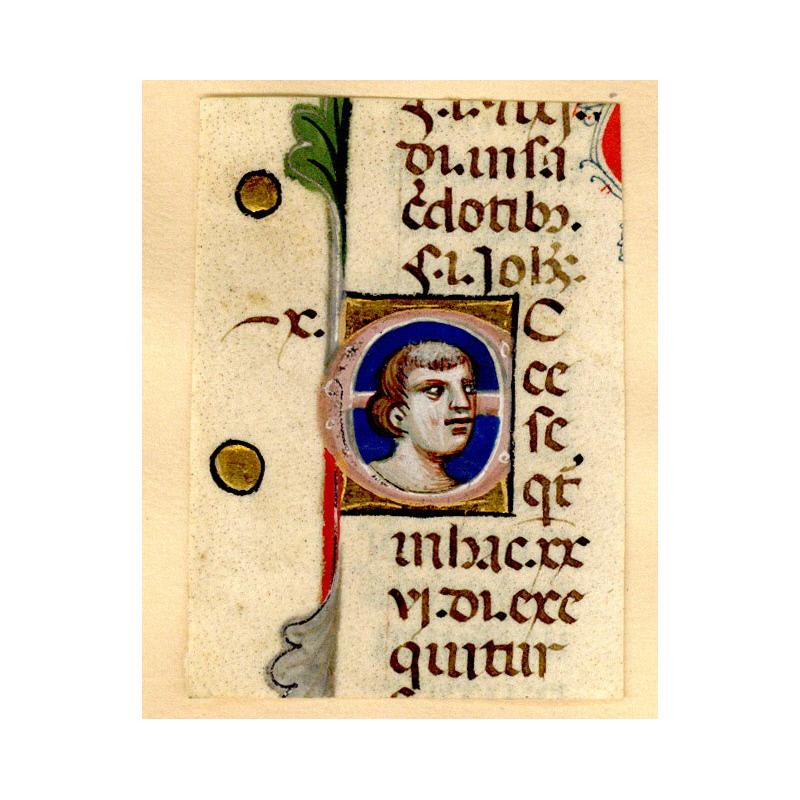 di. in sa
c̄dotibꝫ.
S. i. Joh̄:
x.
E C
ce
se
qt̄
in hac. xx
vj. di. exe
quitur